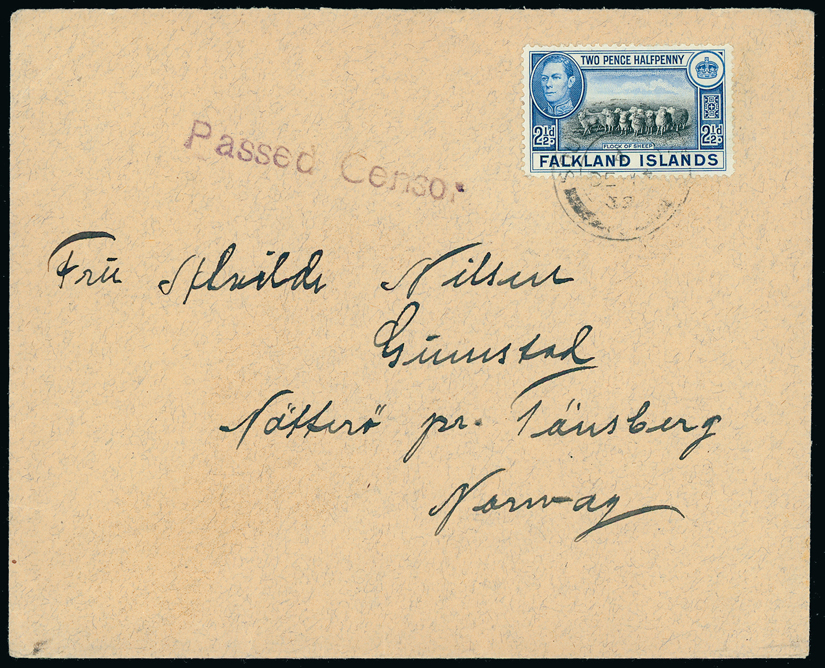 TWO PENCE HALFPENNY
2½d 2½d
FLOCK OF SHEEP
FALKLAND ISLANDS
39
Passed Censor
Fru Alvilde Nilsen
Gunnstad
Nötterö pr. Tönsberg
Norway